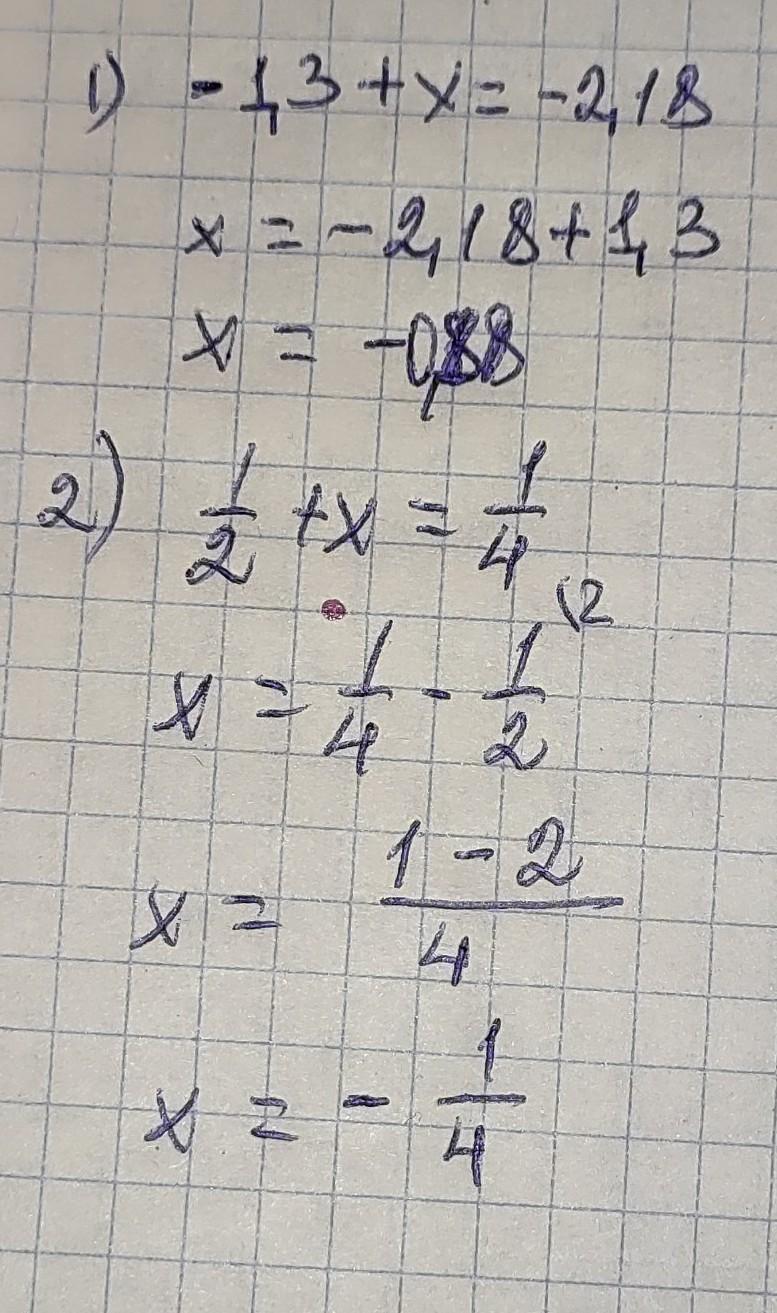 1) -1,3 + x = -2,18
x = -2,18 + 1,3
x = -0,88
2) 1/2 + x = 1/4
x = 1/4 - 1/2 \2
x = (1 - 2)/4
x = - 1/4